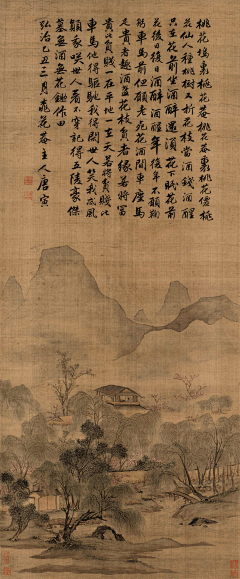 桃花塢裏桃花菴桃花菴裏桃花僊桃
花仙人種桃樹又折花枝當酒錢酒醒
只在花前坐酒醉還須花下眠花前
花後日復日酒醉酒醒年復年不願鞠
躬車馬前但願老死花酒間車塵馬
足貴者趣酒盞花枝貧者緣若將富
貴比貧賤一在平地一在天若將貧賤比
車馬他得驅馳我得閒世人笑我忒風
顛我咲世人看不穿記得五陵豪傑
墓無酒無花鋤作田
弘治乙丑三月桃花菴主人唐寅